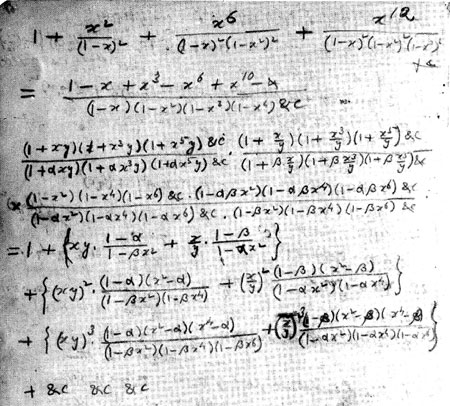 1 + x²/(1-x)² + x⁶/(1-x)²(1-x²)² + x¹²/(1-x)²(1-x²)²(1-x³)² + &
= 1 - x + x³ - x⁶ + x¹⁰ - &/(1-x)(1-x²)(1-x³)(1-x⁴) &c
(1+xy)(1+x³y)(1+x⁵y) &c/(1+αxy)(1+αx³y)(1+αx⁵y) &c · (1+x/y)(1+x³/y)(1+x⁵/y) &c/(1+β x/y)(1+β x³/y)(1+β x⁵/y) &c
× (1-x²)(1-x⁴)(1-x⁶) &c · (1-αβx²)(1-αβx⁴)(1-αβx⁶) &c/(1-αx²)(1-αx⁴)(1-αx⁶) &c · (1-βx²)(1-βx⁴)(1-βx⁶) &c
= 1 + {xy · 1-α/1-βx² + x/y · 1-β/1-αx²}
+ {(xy)² · (1-α)(x²-α)/(1-βx²)(1-βx⁴) + (x/y)² (1-β)(x²-β)/(1-αx²)(1-αx⁴)}
+ {(xy)³ · (1-α)(x²-α)(x⁴-α)/(1-βx²)(1-βx⁴)(1-βx⁶) + (x/y)³ (1-β)(x²-β)(x⁴-β)/(1-αx²)(1-αx⁴)(1-αx⁶)}
+ &c &c &c